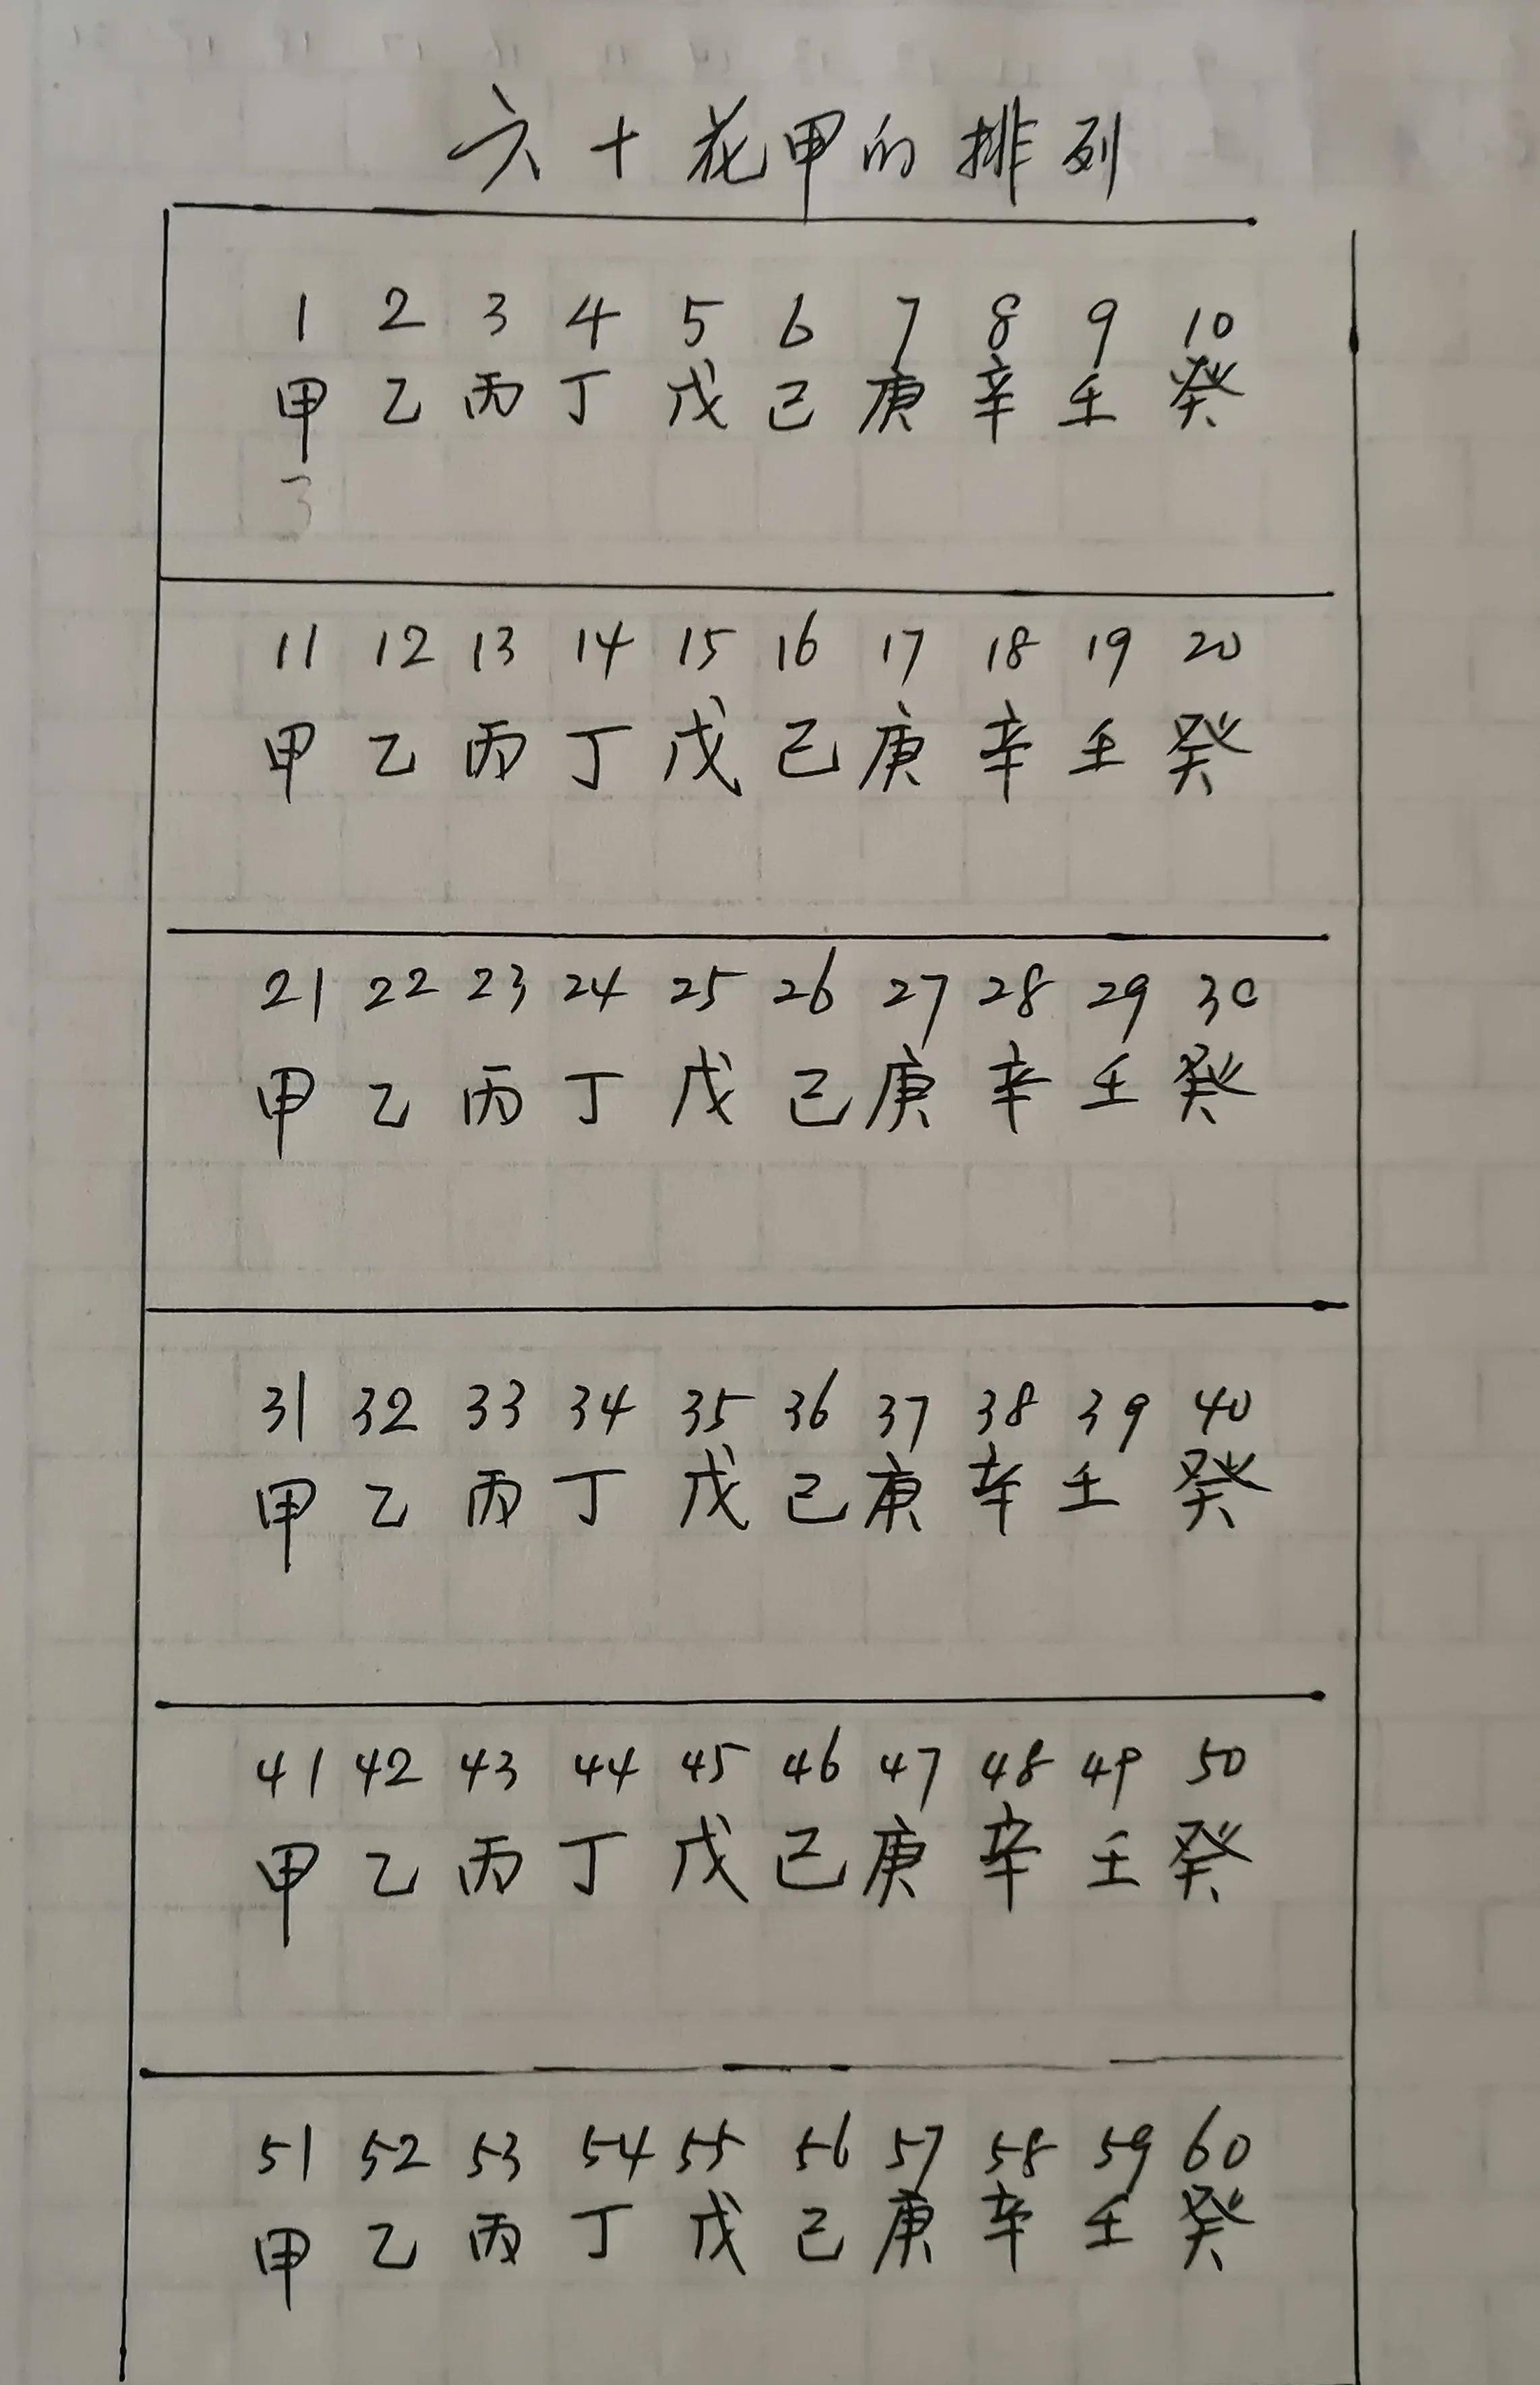 六十花甲的排列
1 2 3 4 5 6 7 8 9 10
甲 乙 丙 丁 戊 己 庚 辛 壬 癸
11 12 13 14 15 16 17 18 19 20
甲 乙 丙 丁 戊 己 庚 辛 壬 癸
21 22 23 24 25 26 27 28 29 30
甲 乙 丙 丁 戊 己 庚 辛 壬 癸
31 32 33 34 35 36 37 38 39 40
甲 乙 丙 丁 戊 己 庚 辛 壬 癸
41 42 43 44 45 46 47 48 49 50
甲 乙 丙 丁 戊 己 庚 辛 壬 癸
51 52 53 54 55 56 57 58 59 60
甲 乙 丙 丁 戊 己 庚 辛 壬 癸